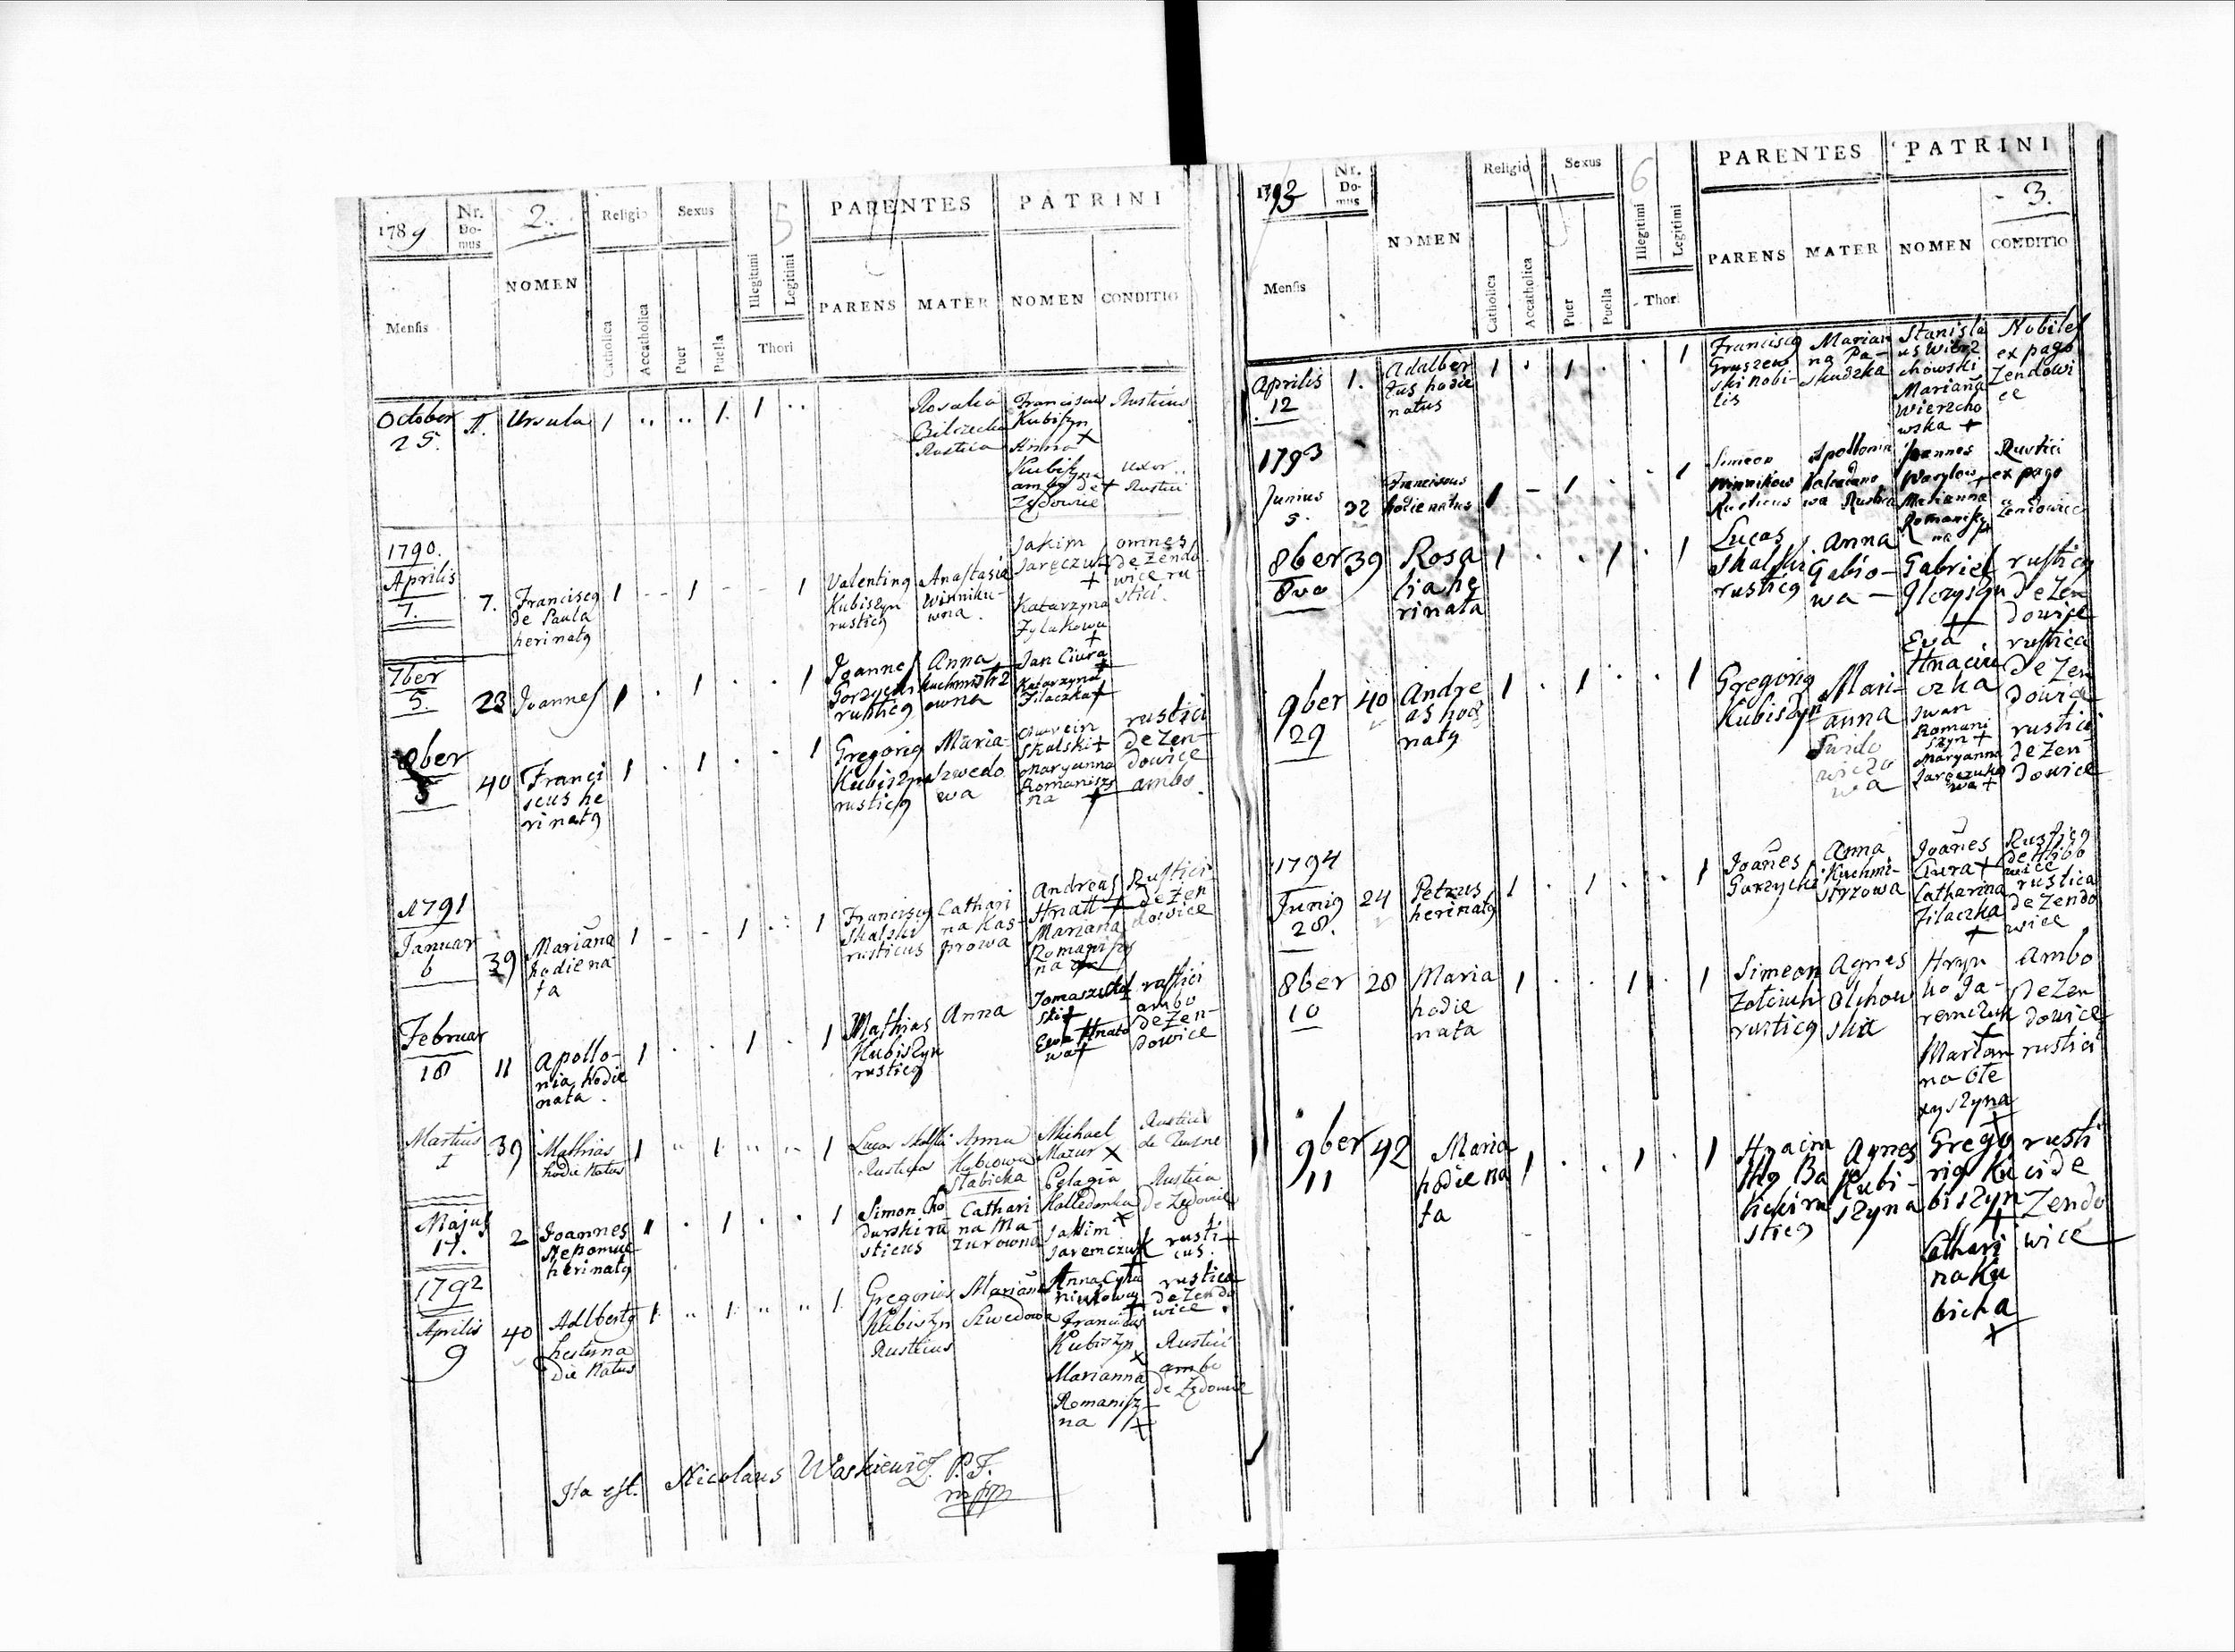 1789
Nr. Domus
2.
Religio
Sexus
5
PARENTES
PATRINI
Mensis
NOMEN
Catholica
Accatholica
Puer
Puella
Illegitimi
Legitimi
Thori
PARENS
MATER
NOMEN
CONDITIO
October
25.
Ursula
1
1.
1
Rosalia
Rustica
Franciscus
Kubiszyn
Anna
Rusticus
uxor
Rustici
1790.
Aprilis
7.
7.
Franciscg
de Paula
herinatg
1
1
1
Valenting
Kubiszyn
rusticg
Anastasia
Winniku-
wna.
Jakim
Jaręczuk
Katarzyna
Zylakowa
omnes
de Zendo
wice ru
stici.
7ber
5.
23
Joannes
1
1
1
Joannes
Gorzycki
rusticg
Anna
Kuchmistrz
owna
Jan Ciura
Katarzyna
Zilaczka
8ber
40
Franci
scus he
rinatg
1
1
1
Gregorig
Kubiszyn
rusticg
Maria
Szwedo
wa
Skalski
Maryanna
Romanisz
na
rustici
de Zen-
dowice
ambo.
1791
Januar
6
39
Mariana
hodie na
ta
1
1
1
Franciscg
Skalski
rusticus
Cathari
na Kas-
prowa
Andreas
Hnatt
Mariana
Romanisz
na
Rustici
de Zen
dowice
Februar
18
11
Apollo-
nia hodie
nata.
1
1
1
Mathias
Kubiszyn
rusticg
Anna
Ewa Hnato
wa
rustici
ambo
de Zen-
dowice
Martius
1
39
Mathias
hodie natus
1
1
1
Lucas Skalski
Rusticus
Anna
Michael
Mazur
Pelagia
Rustica
Majus
17.
2
Joannes
Nepomuc
herinatg
1
1
1
Simon Cho
durski ru
sticus
Cathari
na Ma-
zurowna
Jakim
Jaremczuk
rusti
cus.
1792
Aprilis
9
40
Adlbertg
hesterna
die natus
1
1
1
Gregorius
Kubiszyn
Rusticus
Mariana
Szwedowa
Franciscus
Kubiszyn
Marianna
Romanisz
na
rustica
de Zendo
wice.
Rustici
ambo
Ita est. Nicolaus Waskiewicz. P. J.
1793
Nr. Domus
NOMEN
Religio
Sexus
6
PARENTES
PATRINI
3.
Mensis
Catholica
Accatholica
Puer
Puella
Illegitimi
Legitimi
Thori
PARENS
MATER
NOMEN
CONDITIO
Aprilis
12
1.
Adalber
tus hodie
natus
1
1
1
Franciscg
Gruszew
ski nobi-
lis
Marian
na Pa-
skudzka
Stanisla
us Wierz
chowski
Mariana
Wierzcho
wska
Nobiles
ex pago
Zendowi
ce
1793
Junius
5.
32
Franciscus
hodie natus
1
1
1
Simeon
Winnikow
Rusticus
Apollonia
wa Rustica
Joannes
Wasylow
Marianna
Romanisz
na
Rustici
ex pago
Zendowice
8ber
39
Rosa
lia he
rinata
1
1
1
Lucas
Skalski
rusticg
Anna
Gabio-
wa
Gabriel
Eva
Hnaciu
czka
rusticg
de Zen
dowice
rustica
de Zen
dowice
9ber
29
40
Andre
as hod
natg
1
1
1
Gregorig
Kubiszyn
Mari-
anna
Iwan
Romani
szyn
Maryanna
Jaręczuko
wa
rustici
de Zen
dowice
1794
Junig
28.
24
Petrus
herinatg
1
1
1
Joanes
Gorzycki
Anna
Kuchmi-
strzowa
Joanes
Ciura
Catharina
Zilaczka
Rusticg
rustica
de Zendo
wice
8ber
10
28
Maria
hodie
nata
1
1
1
Simeon
rusticg
Agnes
Olchow
ska
Hryn
ko Ja-
remczuk
Marian
na Ole
xyszyna
Ambo
de Zen
dowice
rustici
9ber
11
42
Maria
hodie na
ta
1
1
1
Agnes
Kubi-
szyna
Grego
rig Ku
biszyn
Cathari
na Ku
bicka
rusti
ci de
Zendo
wice